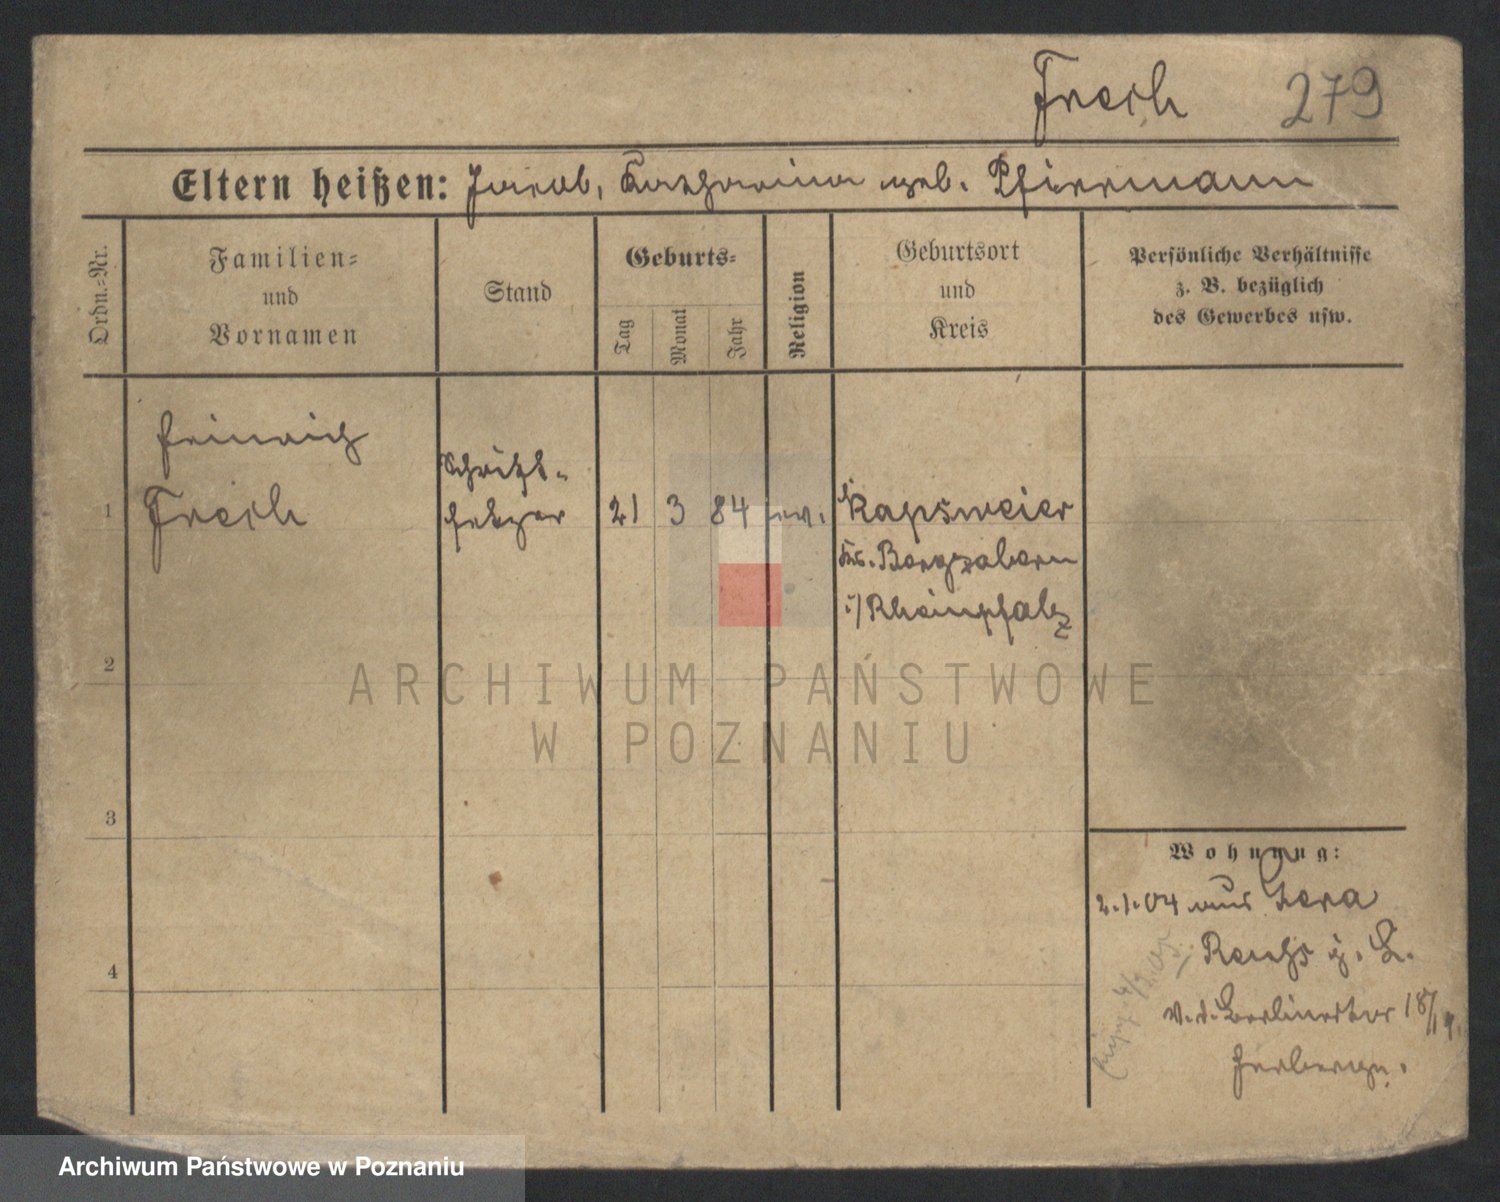 Frech 279
Eltern heißen: Jacob, Katharina geb. Pfirrmann
Ordn.-Nr.
Familien-
und
Vornamen
Stand
Geburts-
Tag
Monat
Jahr
Religion
Geburtsort
und
Kreis
Persönliche Verhältnisse
z. B. bezüglich
des Gewerbes usw.
Heinrich
Frech
Schrift-
setzer
1
21 3 84 ev.
Kapsweier
Kr. Bergzabern
i/Rheinpfalz
2
3
4
Wohnung:
2.1.04 aus Gera
Reuß j. L.
v. d. Berlinertor 18/19.
Herberge.
ARCHIWUM PAŃSTWOWE
W POZNANIU
Archiwum Państwowe w Poznaniu